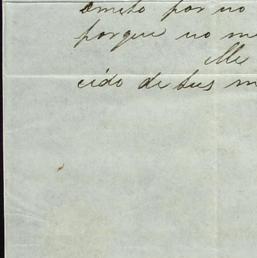 Omito por no
porque no me
Me
cido de sus m